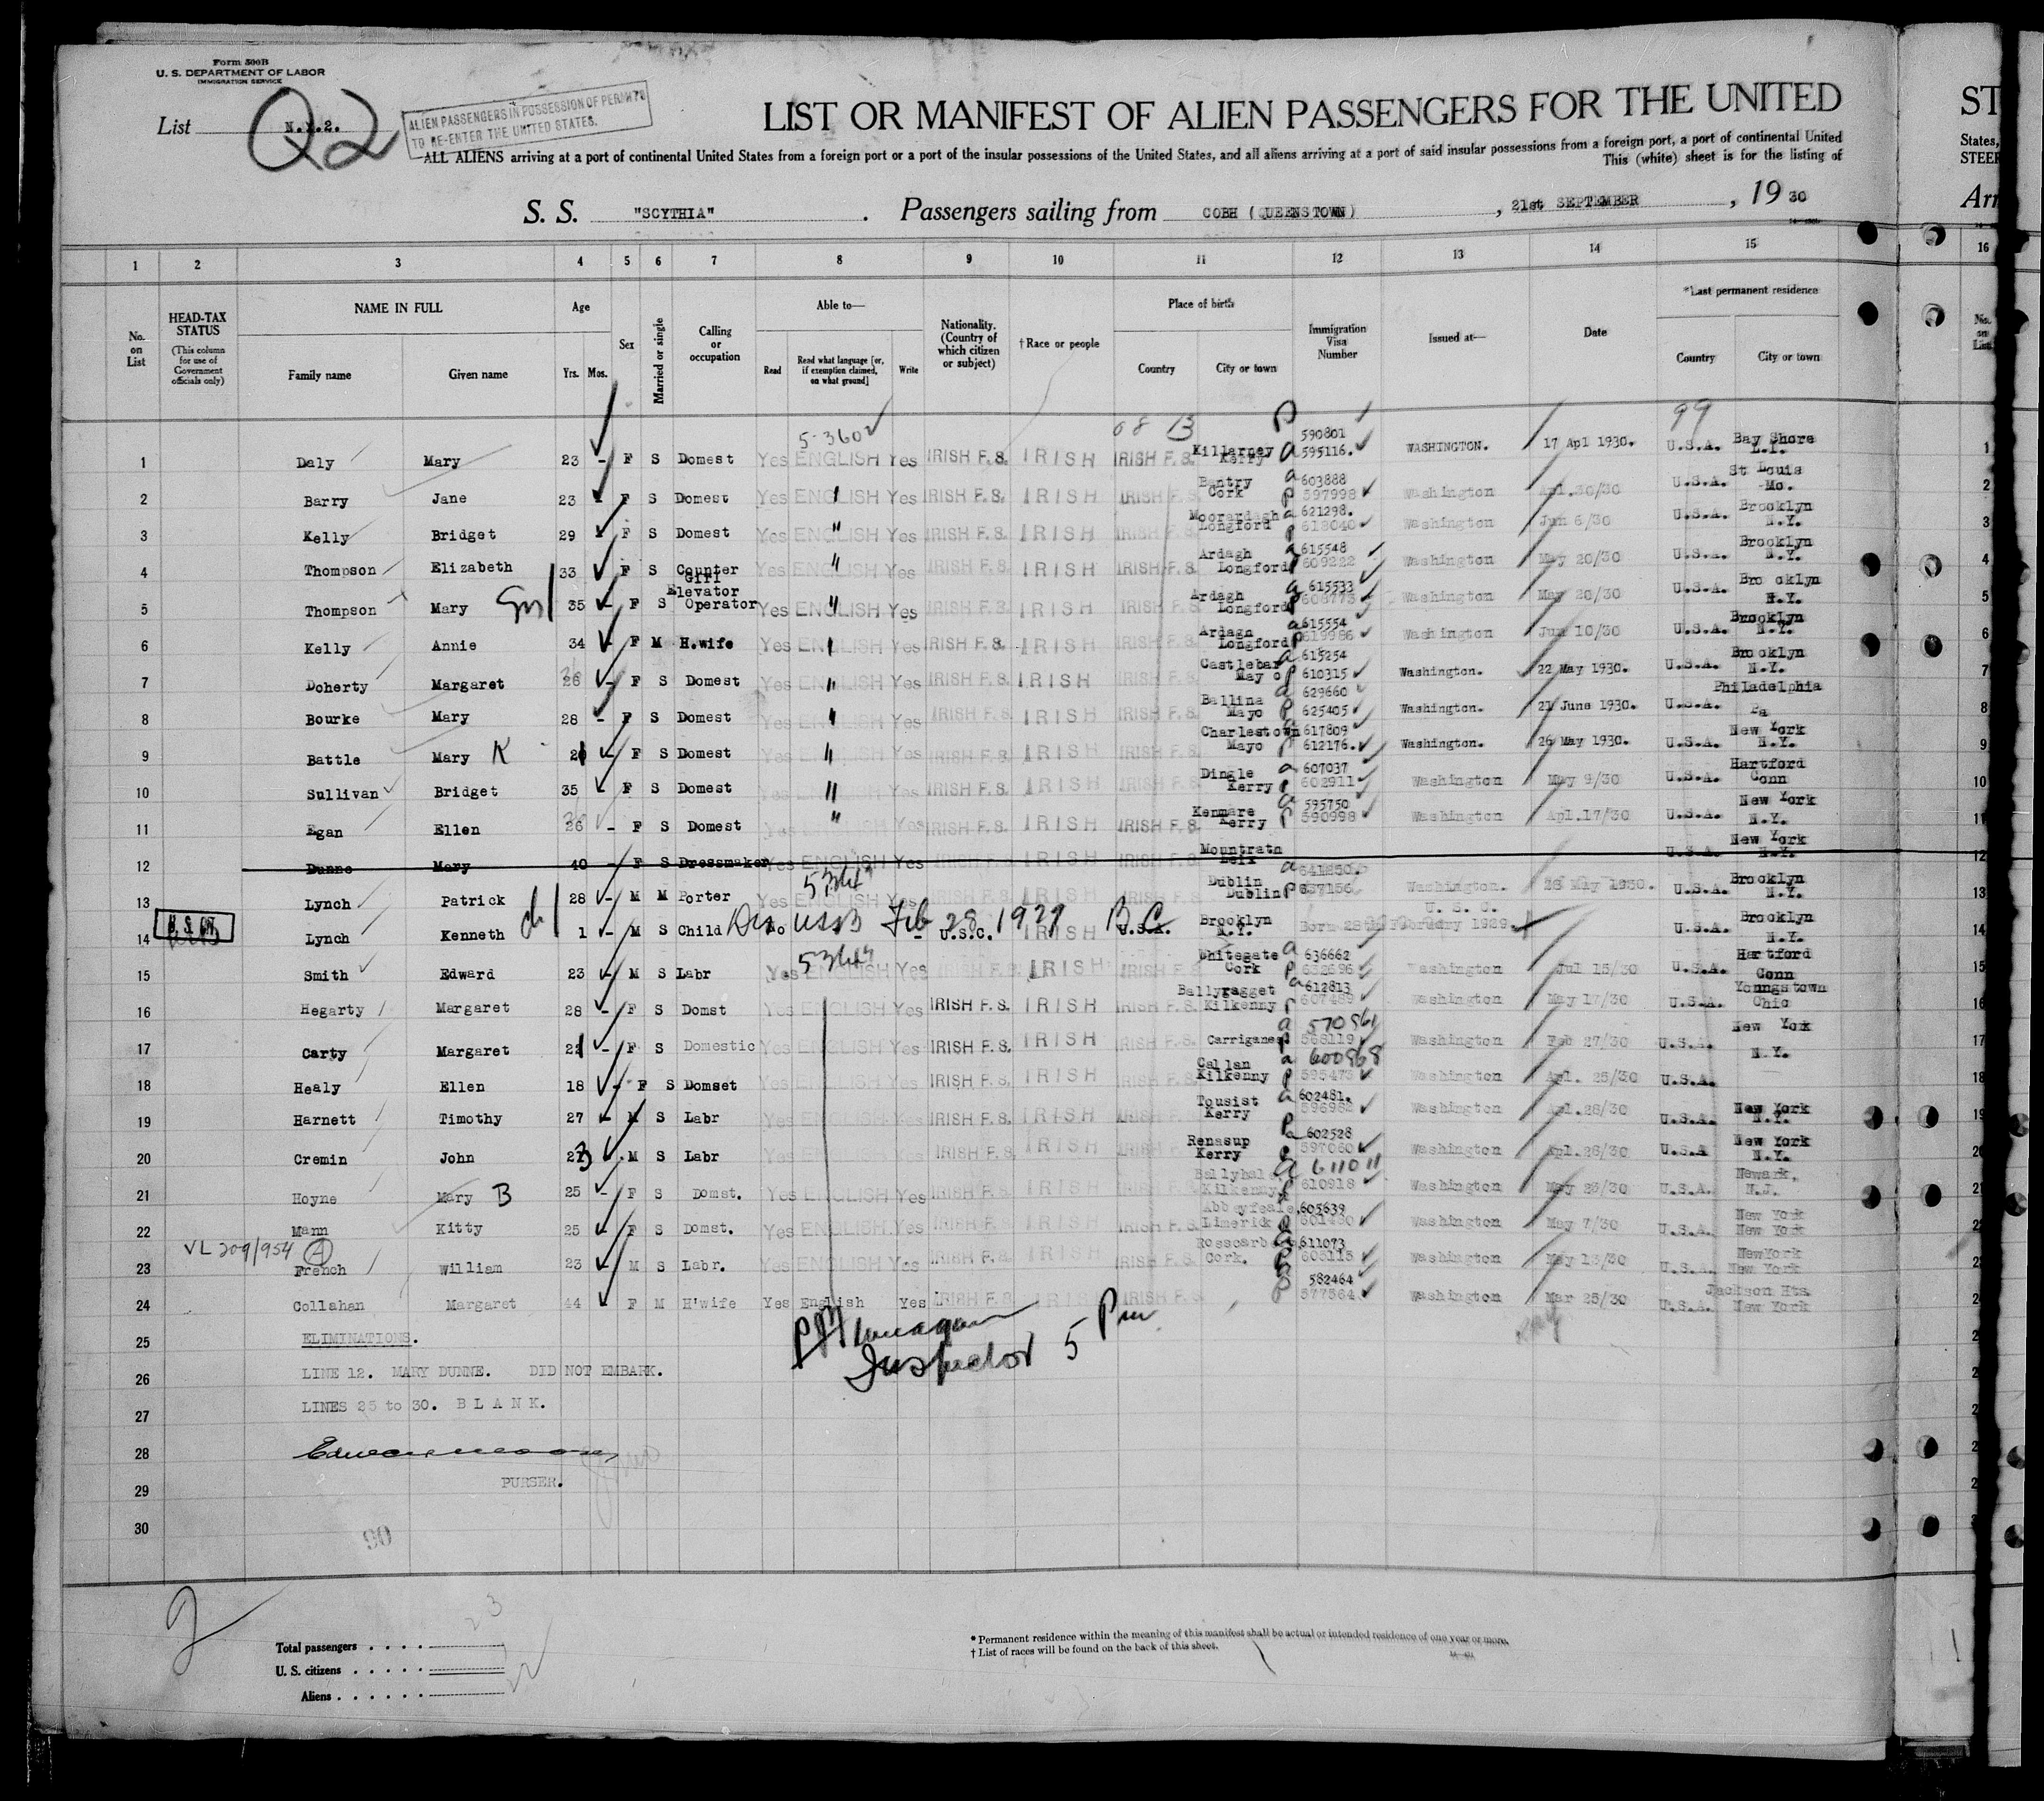 Form 500B
U. S. DEPARTMENT OF LABOR
IMMIGRATION SERVICE
List N.Y.2.
Q2
ALIEN PASSENGERS IN POSSESSION OF PERMITS
TO RE-ENTER THE UNITED STATES.
LIST OR MANIFEST OF ALIEN PASSENGERS FOR THE UNITED
ALL ALIENS arriving at a port of continental United States from a foreign port or a port of the insular possessions of the United States, and all aliens arriving at a port of said insular possessions from a foreign port, a port of continental United
This (white) sheet is for the listing of
S. S. "SCYTHIA" . Passengers sailing from COBH (QUEENSTOWN) , 21st SEPTEMBER , 19 30
ST
States,
STEER
Arr
1 2 3 4 5 6 7 8 9 10 11 12 13 14 15 16
No. on List
HEAD-TAX STATUS
(This column for use of Government officials only)
NAME IN FULL
Family name Given name
Age
Yrs. Mos.
Sex
Married or single
Calling or occupation
Able to—
Read
Read what language [or, if exemption claimed, on what ground]
Write
Nationality. (Country of which citizen or subject)
† Race or people
Place of birth
Country City or town
Immigration Visa Number
Issued at—
Date
*Last permanent residence
Country City or town
No. on List
5-3602 68 B P 99
1 Daly Mary 23 - F S Domest Yes ENGLISH Yes IRISH F.S. IRISH IRISH F.S. Killarney Kerry 590801 595116. WASHINGTON. 17 Apl 1930. U.S.A. Bay Shore L.I. 1
2 Barry Jane 23 - F S Domest Yes ENGLISH Yes IRISH F.S. IRISH IRISH F.S. Bantry Cork 603888 597998 Washington Apl.30/30 U.S.A. St Louis Mo. 2
3 Kelly Bridget 29 - F S Domest Yes ENGLISH Yes IRISH F.S. IRISH IRISH F.S. Longford 621298. 618040 Washington Jun 6/30 U.S.A. Brooklyn N.Y. 3
4 Thompson Elizabeth 33 F S Counter Girl Yes ENGLISH Yes IRISH F.S. IRISH IRISH F.S. Ardagh Longford 615548 609222 Washington May 20/30 U.S.A. Brooklyn N.Y. 4
5 Thompson Mary 35 - F S Elevator Operator Yes ENGLISH Yes IRISH F.S. IRISH IRISH F.S. Ardagh Longford 615533 608773 Washington May 20/30 U.S.A. Brooklyn N.Y. 5
6 Kelly Annie 34 - F M H.wife Yes ENGLISH Yes IRISH F.S. IRISH IRISH F.S. Ardagh Longford 615554 619986 Washington Jun 10/30 U.S.A. Brooklyn N.Y. 6
7 Doherty Margaret 26 - F S Domest Yes ENGLISH Yes IRISH F.S. IRISH IRISH F.S. Castlebar Mayo 615254 610315 Washington. 22 May 1930. U.S.A. Brooklyn N.Y. 7
8 Bourke Mary 28 - F S Domest Yes ENGLISH Yes IRISH F.S. IRISH IRISH F.S. Ballina Mayo 629660 625405 Washington. 21 June 1930. U.S.A. Philadelphia Pa 8
9 Battle Mary K 21 - F S Domest Yes ENGLISH Yes IRISH F.S. IRISH IRISH F.S. Charlestown Mayo 617809 612176. Washington. 26 May 1930. U.S.A. New York N.Y. 9
10 Sullivan Bridget 35 - F S Domest Yes ENGLISH Yes IRISH F.S. IRISH IRISH F.S. Dingle Kerry 607037 602911 Washington May 9/30 U.S.A. Hartford Conn 10
11 Egan Ellen 26 - F S Domest Yes ENGLISH Yes IRISH F.S. IRISH IRISH F.S. Kenmare Kerry 595750 590998 Washington Apl.17/30 U.S.A. New York N.Y. 11
12 Dunne Mary 40 - F S Dressmaker Yes ENGLISH Yes IRISH F.S. IRISH IRISH F.S. Mountrath Leix U.S.A. New York N.Y. 12
13 Lynch Patrick 28 - M M Porter Yes ENGLISH Yes IRISH F.S. IRISH IRISH F.S. Dublin Dublin 641250. 637156 Washington. 28 May 1930. U.S.A. Brooklyn N.Y. 13
14 Lynch Kenneth 1 - M S Child No - U.S.C. IRISH U.S.A. Brooklyn N.Y. U.S.C. Born 28th February 1929. U.S.A. Brooklyn N.Y. 14
Feb 28, 1929 B.C.
15 Smith Edward 23 - M S Labr Yes ENGLISH Yes IRISH F.S. IRISH IRISH F.S. Whitegate Cork 636662 632696 Washington Jul 15/30 U.S.A. Hartford Conn 15
16 Hegarty Margaret 28 - F S Domst Yes ENGLISH Yes IRISH F.S. IRISH IRISH F.S. Ballyragget Kilkenny 612813 607489 Washington May 17/30 U.S.A. Youngstown Ohio 16
17 Carty Margaret 21 - F S Domestic Yes ENGLISH Yes IRISH F.S. IRISH IRISH F.S. Carriganes 570861 568119 Washington Feb 27/30 U.S.A. New York N.Y. 17
18 Healy Ellen 18 - F S Domset Yes ENGLISH Yes IRISH F.S. IRISH IRISH F.S. Callan Kilkenny 600868 595473 Washington Apl. 25/30 U.S.A. 18
19 Harnett Timothy 27 - M S Labr Yes ENGLISH Yes IRISH F.S. IRISH IRISH F.S. Tousist Kerry 602481. 596982 Washington Apl.28/30 U.S.A. New York N.Y. 19
20 Cremin John 23 - M S Labr Yes ENGLISH Yes IRISH F.S. IRISH IRISH F.S. Renasup Kerry 602528 597060 Washington Apl.28/30 U.S.A New York N.Y. 20
21 Hoyne Mary B 25 - F S Domst. Yes ENGLISH Yes IRISH F.S. IRISH IRISH F.S. Ballyhale Kilkenny 611011 610918 Washington May 26/30 U.S.A. Newark, N.J. 21
22 Mann Kitty 25 - F S Domst. Yes ENGLISH Yes IRISH F.S. IRISH IRISH F.S. Abbeyfeale, Limerick 605639 601430 Washington May 7/30 U.S.A. New York New York 22
VL 209/954 A
23 French William 23 - M S Labr. Yes ENGLISH Yes IRISH F.S. IRISH IRISH F.S. Cork. 611073 606115 Washington May 13/30 U.S.A. NewYork New York 23
24 Collahan Margaret 44 - F M H'wife Yes English Yes IRISH F.S. IRISH IRISH F.S. 582464 577564 Washington Mar 25/30 U.S.A. Jackson Hts. New York 24
25 ELIMINATIONS.
Inspector 5 Pm
26 LINE 12. MARY DUNNE. DID NOT EMBARK.
27 LINES 25 to 30. B L A N K.
28
29 PURSER.
30
90
2
Total passengers . . . . 23
U. S. citizens . . . . .
Aliens . . . . . .
* Permanent residence within the meaning of this manifest shall be actual or intended residence of one year or more.
† List of races will be found on the back of this sheet.